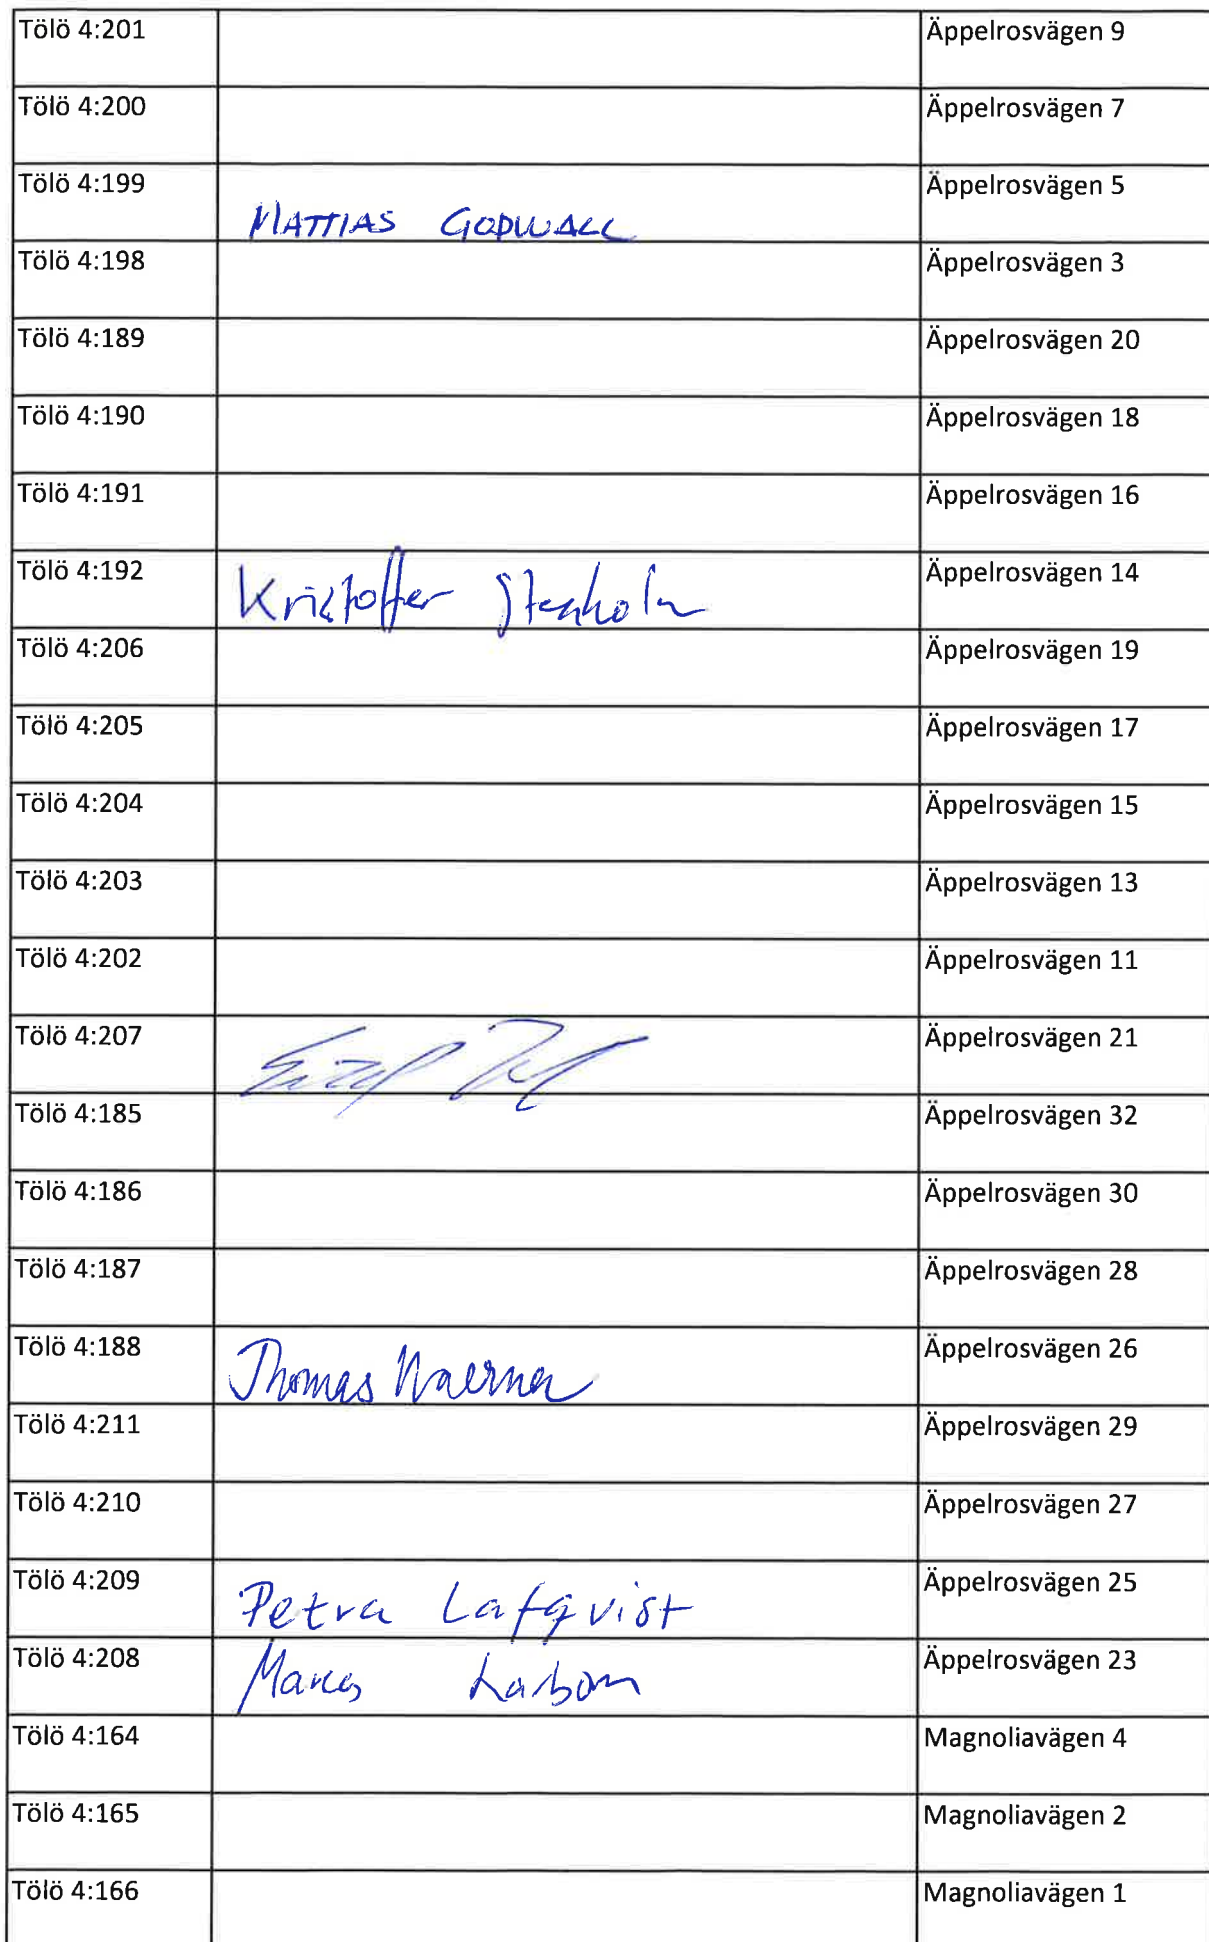 Tölö 4:201 Äppelrosvägen 9
Tölö 4:200 Äppelrosvägen 7
Tölö 4:199 MATTIAS GODWALL Äppelrosvägen 5
Tölö 4:198 Äppelrosvägen 3
Tölö 4:189 Äppelrosvägen 20
Tölö 4:190 Äppelrosvägen 18
Tölö 4:191 Äppelrosvägen 16
Tölö 4:192 Kristoffer Stenholm Äppelrosvägen 14
Tölö 4:206 Äppelrosvägen 19
Tölö 4:205 Äppelrosvägen 17
Tölö 4:204 Äppelrosvägen 15
Tölö 4:203 Äppelrosvägen 13
Tölö 4:202 Äppelrosvägen 11
Tölö 4:207 Äppelrosvägen 21
Tölö 4:185 Äppelrosvägen 32
Tölö 4:186 Äppelrosvägen 30
Tölö 4:187 Äppelrosvägen 28
Tölö 4:188 Thomas Waerner Äppelrosvägen 26
Tölö 4:211 Äppelrosvägen 29
Tölö 4:210 Äppelrosvägen 27
Tölö 4:209 Petra Lafqvist Äppelrosvägen 25
Tölö 4:208 Marcus Äppelrosvägen 23
Tölö 4:164 Magnoliavägen 4
Tölö 4:165 Magnoliavägen 2
Tölö 4:166 Magnoliavägen 1